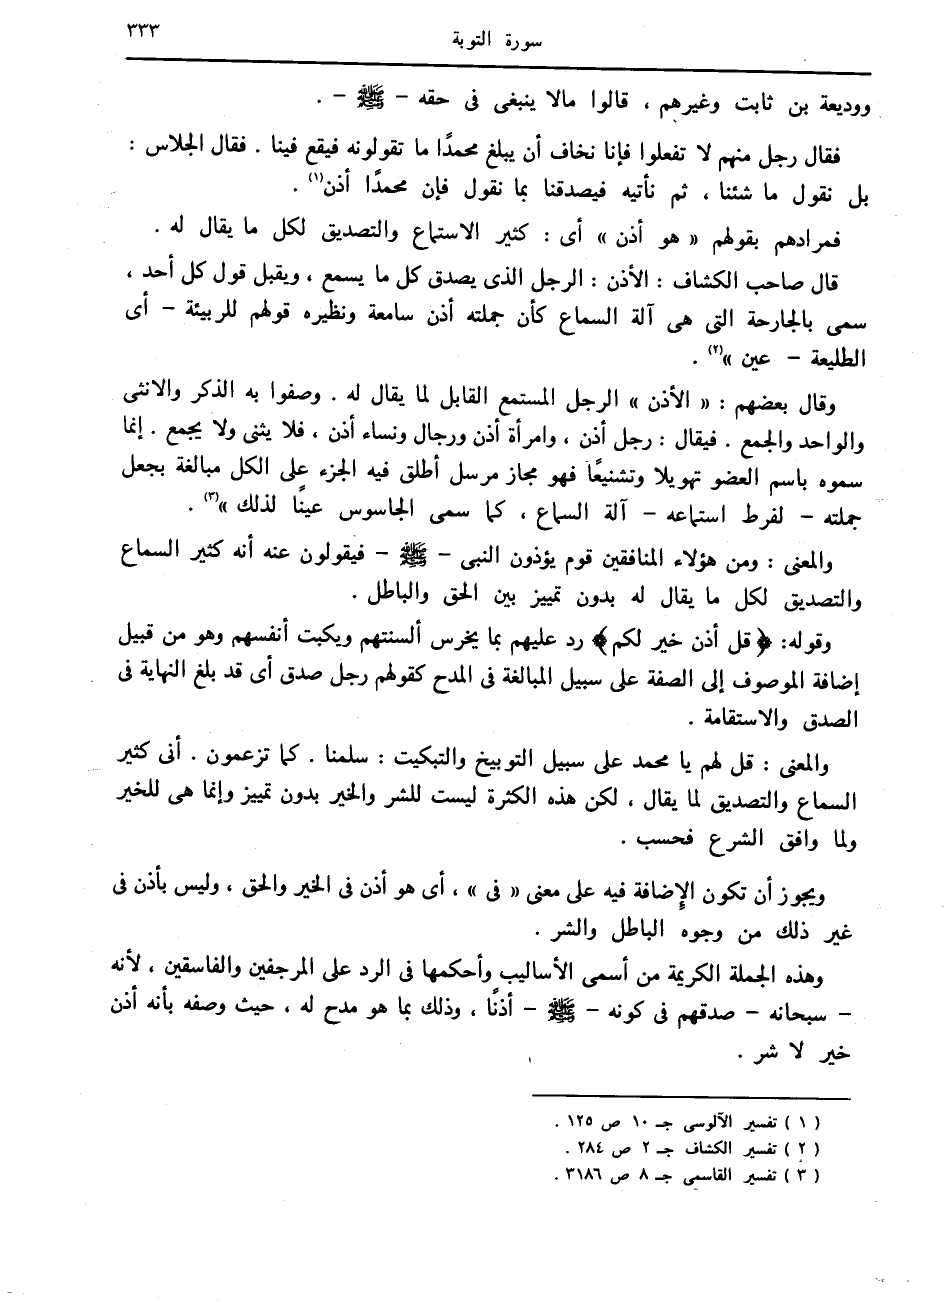 سورة التوبة
٣٣٣
ووديعة بن ثابت وغيرهم ، قالوا مالا ينبغى فى حقه – ﷺ – .
فقال رجل منهم لا تفعلوا فإنا نخاف أن يبلغ محمدًا ما تقولونه فيقع فينا . فقال الجلاس :
بل نقول ما شئنا ، ثم نأتيه فيصدقنا بما نقول فإن محمدًا أذن(١) .
فمرادهم بقولهم « هو أذن » أى : كثير الاستماع والتصديق لكل ما يقال له .
قال صاحب الكشاف : الأذن : الرجل الذى يصدق كل ما يسمع ، ويقبل قول كل أحد ،
سمى بالجارحة التى هى آلة السماع كأن جملته أذن سامعة ونظيره قولهم للربيئة – أى
الطليعة – عين »(٢) .
وقال بعضهم : « الأذن » الرجل المستمع القابل لما يقال له . وصفوا به الذكر والانثى
والواحد والجمع . فيقال : رجل أذن ، وامرأة أذن ورجال ونساء أذن ، فلا يثنى ولا يجمع . إنما
سموه باسم العضو تهويلا وتشنيعًا فهو مجاز مرسل أطلق فيه الجزء على الكل مبالغة بجعل
جملته – لفرط استماعه – آلة السماع ، كما سمى الجاسوس عينًا لذلك »(٣) .
والمعنى : ومن هؤلاء المنافقين قوم يؤذون النبى – ﷺ – فيقولون عنه أنه كثير السماع
والتصديق لكل ما يقال له بدون تمييز بين الحق والباطل .
وقوله: ﴿قل أذن خير لكم﴾ رد عليهم بما يخرس ألسنتهم ويكبت أنفسهم وهو من قبيل
إضافة الموصوف إلى الصفة على سبيل المبالغة فى المدح كقولهم رجل صدق أى قد بلغ النهاية فى
الصدق والاستقامة .
والمعنى : قل لهم يا محمد على سبيل التوبيخ والتبكيت : سلمنا . كما تزعمون . أنى كثير
السماع والتصديق لما يقال ، لكن هذه الكثرة ليست للشر والخير بدون تمييز وإنما هى للخير
ولما وافق الشرع فحسب .
ويجوز أن تكون الإضافة فيه على معنى « فى » ، أى هو أذن فى الخير والحق ، وليس بأذن فى
غير ذلك من وجوه الباطل والشر .
وهذه الجملة الكريمة من أسمى الأساليب وأحكمها فى الرد على المرجفين والفاسقين ، لأنه
– سبحانه – صدقهم فى كونه – ﷺ – أذنًا ، وذلك بما هو مدح له ، حيث وصفه بأنه أذن
خير لا شر .
( ١ ) تفسير الآلوسى جـ ١٠ ص ١٢٥ .
( ٢ ) تفسير الكشاف جـ ٢ ص ٢٨٤ .
( ٣ ) تفسير القاسمى جـ ٨ ص ٣١٨٦ .